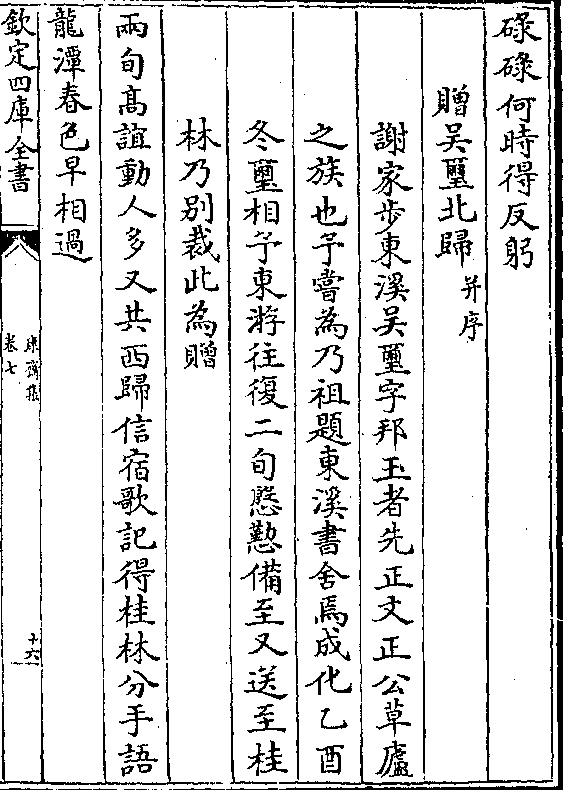 碌碌何時得反躬
贈吴璽北歸 并序
謝家步東溪吴璽字邦玉者先正文正公草廬
之族也予嘗為乃祖題東溪書舍焉成化乙酉
冬璽相予東游往復二旬慇懃備至又送至桂
林乃别裁此為贈
兩旬髙誼動人多又共西歸信宿歌記得桂林分手語
龍潭春色早相過
欽定四庫全書
康齋集
卷七
十六